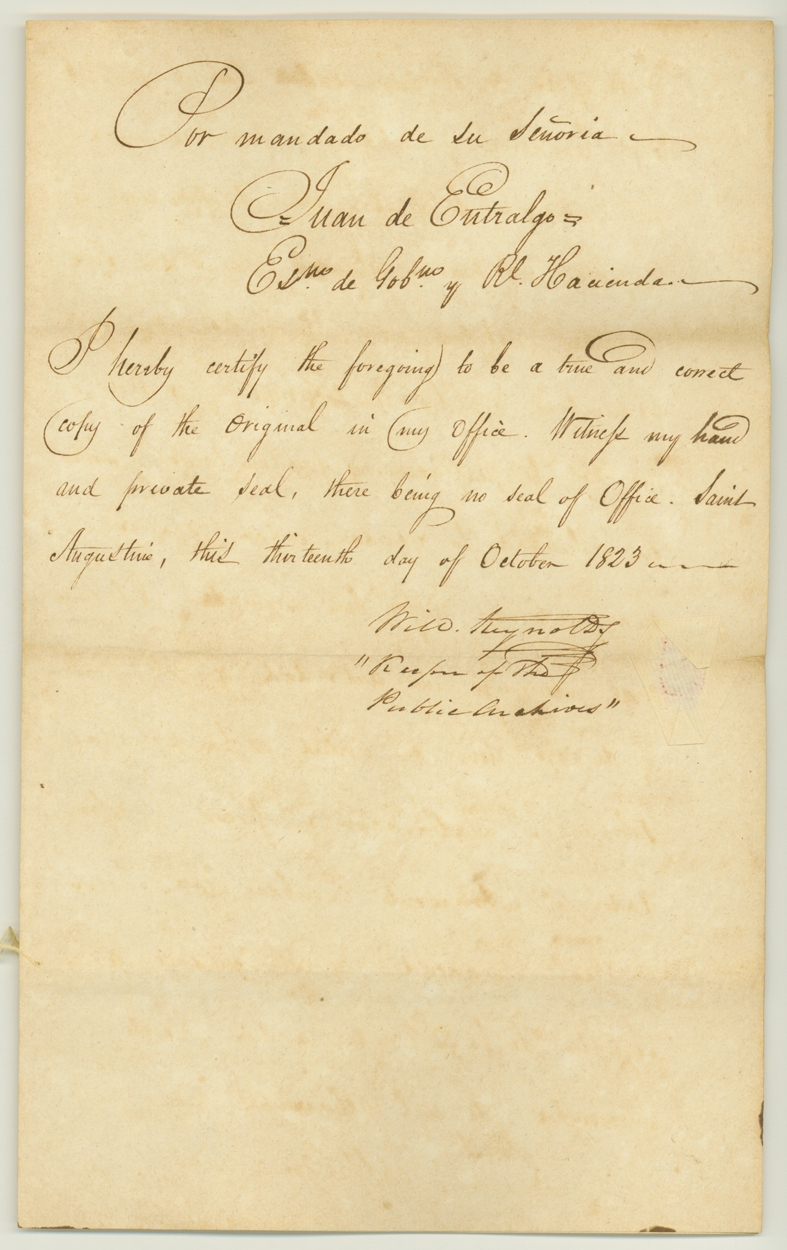 Por mandado de su Señoria
=Juan de Entralgo=
Esno. de Gobno. y Rl. Hacienda.
I hereby certify the foregoing to be a true and correct
copy of the original in my office. Witness my hand
and private seal, there being no seal of Office. Saint
Augustine, this thirteenth day of October 1823
Will. Reynolds
"Keeper of the
Public Archives"